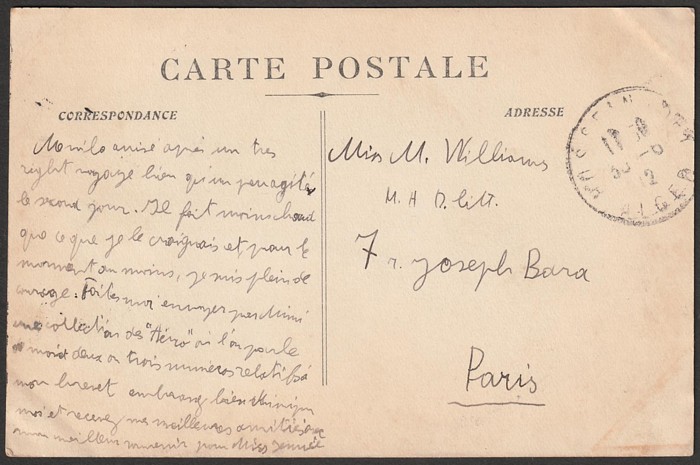 CARTE POSTALE
CORRESPONDANCE
ADRESSE
HUSSEIN-DEY
ALGER
12
Me voilà arrivé après un tres
right voyage bien qu'un peu agité
le second jour. Il fait moins chaud
que ce que je le craignais et pour le
moment au moins, je suis plein de
courage. Faites moi envoyer par Mimi
une collection des "Aéro" où l'on parle
moi deux ou trois numéros relatifs à
mon brevet embrassez bien
moi et recevez mes meilleures amitiés
mon meilleur souvenir pour Miss
Miss M. Williams
M. A D. litt.
7 r. Joseph Bara
Paris